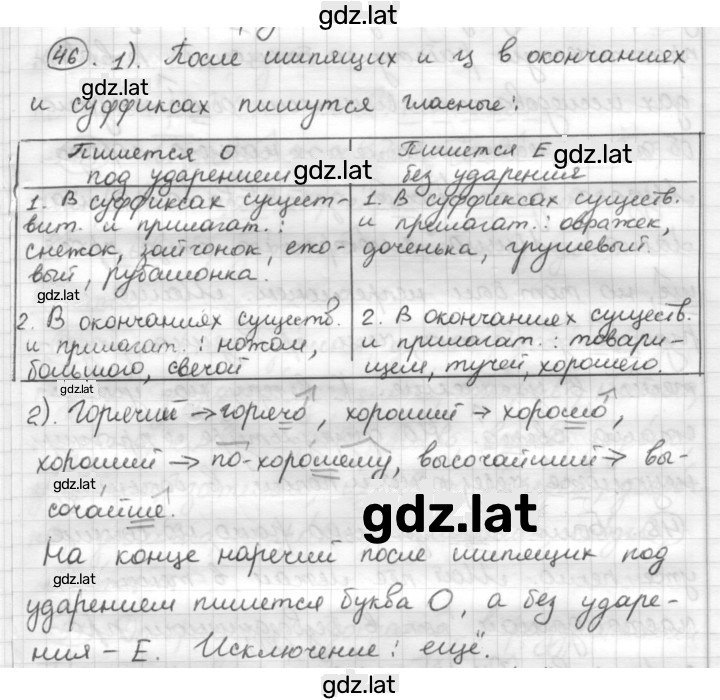 gdz.lat
46. 1). После шипящих и ц в окончаниях
gdz.lat
и суффиксах пишутся гласные:
Пишется О
под ударением
gdz.lat
Пишется Е
без ударения
gdz.lat
1. В суффиксах сущест-
вит. и прилагат.:
снежок, зайчонок, ежо-
вый, рубашонка.
gdz.lat
1. В суффиксах существ.
и прилагат.: овражек,
доченька, грушевый.
2. В окончаниях существ.
и прилагат.: ножом,
большого, свечой
gdz.lat
2. В окончаниях существ.
и прилагат.: товари-
щем, тучей, хорошего.
2). Горячий → горячо, хороший → хорошо,
хороший → по-хорошему, высочайший → вы-
gdz.lat
сочайше.
gdz.lat
На конце наречий после шипящих под
gdz.lat
ударением пишется буква О, а без ударе-
ния – Е. Исключение: ещё.
gdz.lat